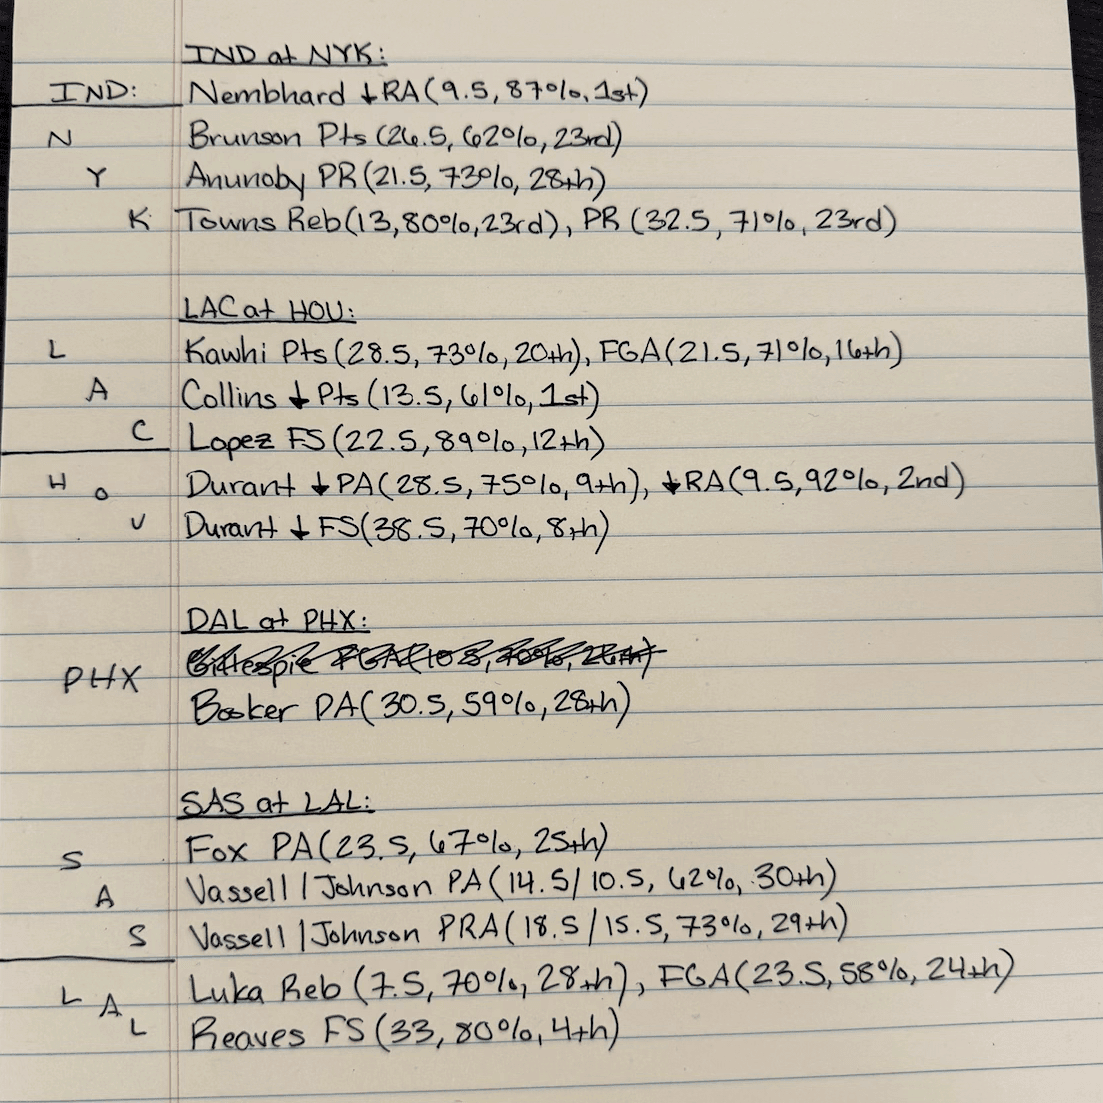 IND at NYK:
IND: Nembhard ↓RA(9.5, 87%, 1st)
N Brunson Pts (26.5, 62%, 23rd)
Y Anunoby PR(21.5, 73%, 28th)
K Towns Reb(13, 80%, 23rd), PR (32.5, 71%, 23rd)
LAC at HOU:
L Kawhi Pts(28.5, 73%, 20th), FGA(21.5, 71%, 16th)
A Collins ↓ Pts(13.5, 61%, 1st)
C Lopez FS(22.5, 89%, 12th)
H O Durant ↓PA(28.5, 75%, 9th), ↓RA(9.5, 92%, 2nd)
U Durant ↓ FS(38.5, 70%, 8th)
DAL at PHX:
Gillespie FGA(
PHX
Booker PA(30.5, 59%, 28th)
SAS at LAL:
S Fox PA(23.5, 67%, 25th)
A Vassell/Johnson PA(14.5/10.5, 62%, 30th)
S Vassell/Johnson PRA(18.5/15.5, 73%, 29th)
L A Luka Reb (7.5, 70%, 28th), FGA(23.5, 58%, 24th)
L Reaves FS(33, 80%, 4th)